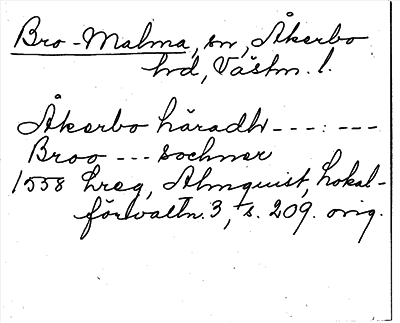 Bro-Malma, sn, Åkerbo
hd, Västm. l.
Åkerbo häradh ---:---
Broo --- sochner
1558 Lreg, Almquist, Lokal-
förvaltn. 3, s. 209. orig.